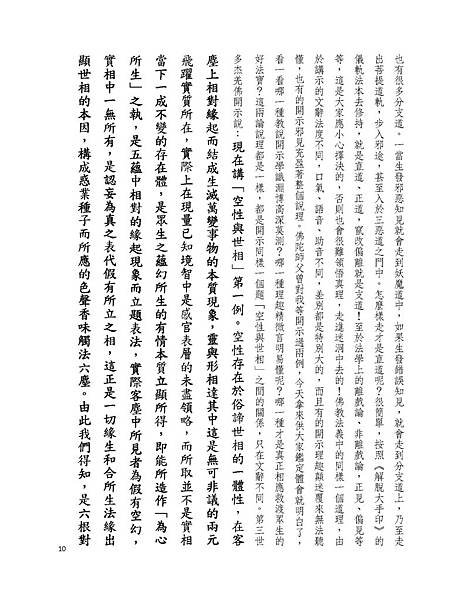 也有很多分支道。一當生發邪惡知見就會走到妖魔道中，如果生發錯誤知見，就會走到分支道上，乃至走
出菩提道軌，步入邪途，甚至入於三惡道之門中。怎麼樣走才是直道呢？很簡單，按照《解脫大手印》的
儀軌法本去修持，就是直道、正道，竄改偏離就是支道！至於法學上的離戲論、非離戲論，正見、偏見等
等，這是大家應小心擇決的，否則也會很難領悟真理，走進迷洞中去的！佛教法義中的同樣一個道理，由
於講示的文辭法度不同，口氣、語音、助音不同，差別都是特別大的，而且有的開示理趣顛迷覆來無法聽
懂，也有的開示邪見充盈著整個說理。佛陀師父曾對我等開示過兩例，今天拿來供大家鑑定體會就明白了，
看一看哪一種教說開示學識淵博高深莫測？哪一種理趣精微言明易懂呢？哪一種才是真正相應救渡眾生的
好法寶？這兩論說理都是一樣，都是開示同樣一個題「空性與世相」之間的關係，只在文辭不同。第三世
多杰羌佛開示說：現在講「空性與世相」第一例。空性存在於俗諦世相的一體性，在客
塵上相對緣起而結成生滅萬變事物的本質現象，靈與形相達其中這是無可非議的兩元
飛躍實質所在，實際上在現量已知境智中是感官表層的未盡領略，而所取並不是實相
當下一成不變的存在體，是眾生之蘊幻所生的有情本質立顯所得，即能所造作「為心
所生」之執，是五蘊中相對的緣起現象而立題表法，實際客塵中所見者為假有空幻，
實相中一無所有，是認妄為真之表代假有所立之相，這正是一切緣生和合所生法緣出
顯世相的本因，構成惑業種子而所應的色聲香味觸法六塵。由此我們得知，是六根對
10